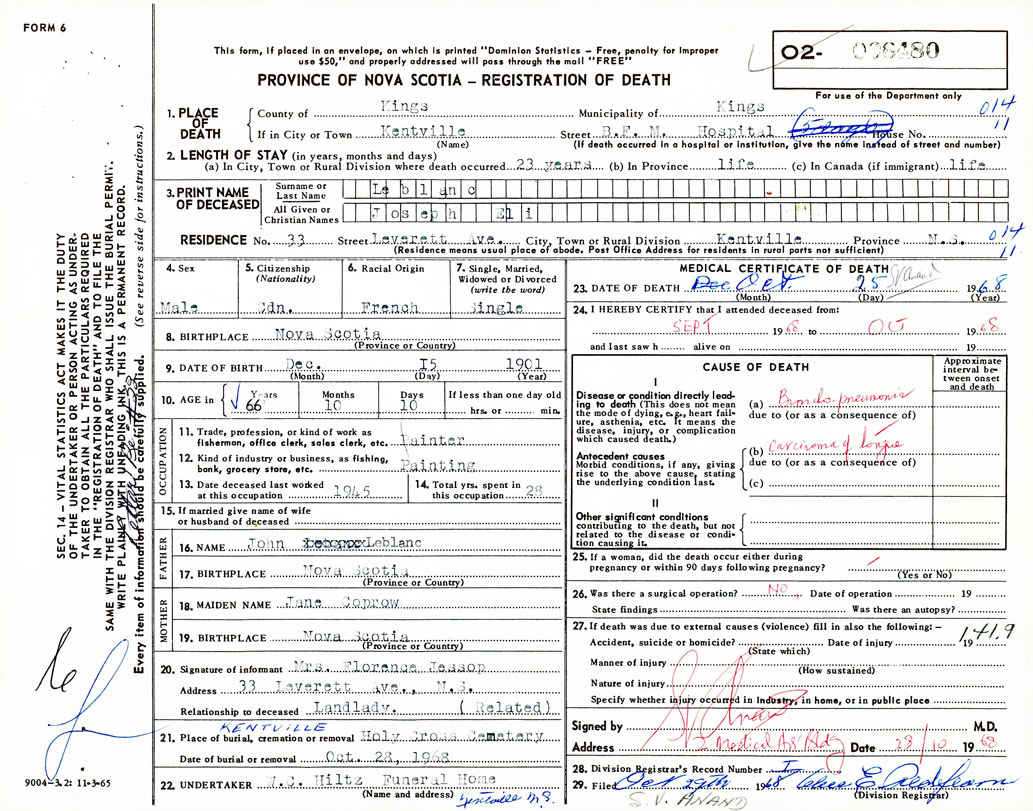 FORM 6
This form, if placed in an envelope, on which is printed "Dominion Statistics – Free, penalty for improper
use $50," and properly addressed will pass through the mail "FREE"
PROVINCE OF NOVA SCOTIA – REGISTRATION OF DEATH
02- 006480
For use of the Department only
SEC. 14 – VITAL STATISTICS ACT MAKES IT THE DUTY
OF THE UNDERTAKER OR PERSON ACTING AS UNDER-
TAKER TO OBTAIN ALL THE PARTICULARS REQUIRED
IN THE "REGISTRATION OF DEATH" AND TO FILE THE
SAME WITH THE DIVISION REGISTRAR WHO SHALL ISSUE THE BURIAL PERMIT.
WRITE PLAINLY WITH UNFADING INK, THIS IS A PERMANENT RECORD.
Every item of information should be carefully supplied. (See reverse side for instructions.)
1. PLACE OF DEATH
County of Kings Municipality of Kings 014
If in City or Town Kentville Street B.F.M. Hospital House No. 11
(Name) (If death occurred in a hospital or institution, give the name instead of street and number)
2. LENGTH OF STAY (in years, months and days)
(a) In City, Town or Rural Division where death occurred 23 years (b) In Province life (c) In Canada (if immigrant) life
3. PRINT NAME OF DECEASED
Surname or Last Name Leblanc
All Given or Christian Names Joseph Eli
RESIDENCE No. 33 Street Leverett Ave. City, Town or Rural Division Kentville Province N.S. 014
(Residence means usual place of abode. Post Office Address for residents in rural parts not sufficient) 11
4. Sex
Male
5. Citizenship (Nationality)
Cdn.
6. Racial Origin
French
7. Single, Married, Widowed or Divorced (write the word)
Single
8. BIRTHPLACE Nova Scotia
(Province or Country)
9. DATE OF BIRTH Dec. 15 1901
(Month) (Day) (Year)
10. AGE in Years 66 Months 10 Days 10 If less than one day old
hrs. or min.
OCCUPATION
11. Trade, profession, or kind of work as
fisherman, office clerk, sales clerk, etc. Painter
12. Kind of industry or business, as fishing,
bank, grocery store, etc. Painting
13. Date deceased last worked
at this occupation 1945
14. Total yrs. spent in
this occupation 28
15. If married give name of wife
or husband of deceased
FATHER
16. NAME John Leblanc
17. BIRTHPLACE Nova Scotia
(Province or Country)
MOTHER
18. MAIDEN NAME Jane Coprow
19. BIRTHPLACE Nova Scotia
(Province or Country)
20. Signature of informant Mrs. Florence Jessop
Address 33 Leverett Ave., N.S.
Relationship to deceased Landlady. ( Related)
KENTVILLE
21. Place of burial, cremation or removal Holy Cross Cemetery
Date of burial or removal Oct. 28, 1968
22. UNDERTAKER W.C. Hiltz Funeral Home
(Name and address) Kentville N.S.
9004-3.2: 11-3-65
MEDICAL CERTIFICATE OF DEATH
S. Anand
23. DATE OF DEATH Dec Oct. 25 1968
(Month) (Day) (Year)
24. I HEREBY CERTIFY that I attended deceased from:
SEPT 1968 to OCT 1968
and last saw h alive on 19
CAUSE OF DEATH
Approximate interval between onset and death
I
Disease or condition directly lead-
ing to death (This does not mean
the mode of dying, e.g., heart fail-
ure, asthenia, etc. It means the
disease, injury, or complication
which caused death.)
(a) Broncho pneumonia
due to (or as a consequence of)
Antecedent causes
Morbid conditions, if any, giving
rise to the above cause, stating
the underlying condition last.
(b) Carcinoma of tongue
due to (or as a consequence of)
(c)
II
Other significant conditions
contributing to the death, but not
related to the disease or condi-
tion causing it.
25. If a woman, did the death occur either during
pregnancy or within 90 days following pregnancy?
(Yes or No)
26. Was there a surgical operation? NO Date of operation 19
State findings Was there an autopsy?
27. If death was due to external causes (violence) fill in also the following: –
141.9
Accident, suicide or homicide? Date of injury 19
(State which)
Manner of injury
(How sustained)
Nature of injury
Specify whether injury occurred in Industry, in home, or in public place
Signed by S. Anand M.D.
Address Medical Arts Bldg Date 28/10 1968
28. Division Registrar's Record Number
29. Filed Oct 29th 1968
(Division Registrar)
S.V. ANAND